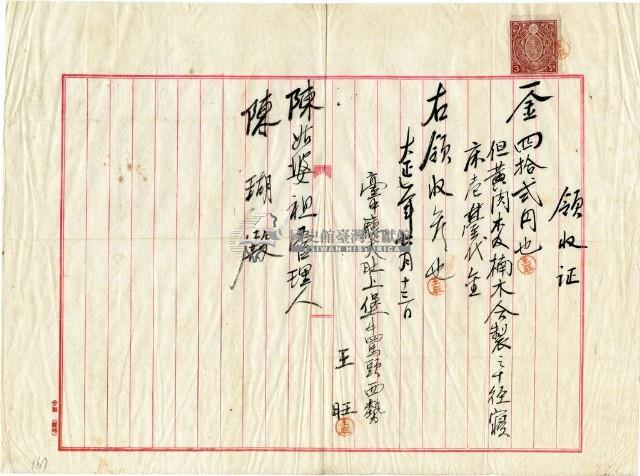 領收証
一金四拾貳円也
但黃肉木及楠木合製
床壱 代金
右領收候也
大正 年 月十三日
臺中廳 上堡牛罵頭西勢
王 旺
陳姑婆祖管理人
陳瑚 殿
國史館臺灣文獻館
TAIWAN HISTORICA
167